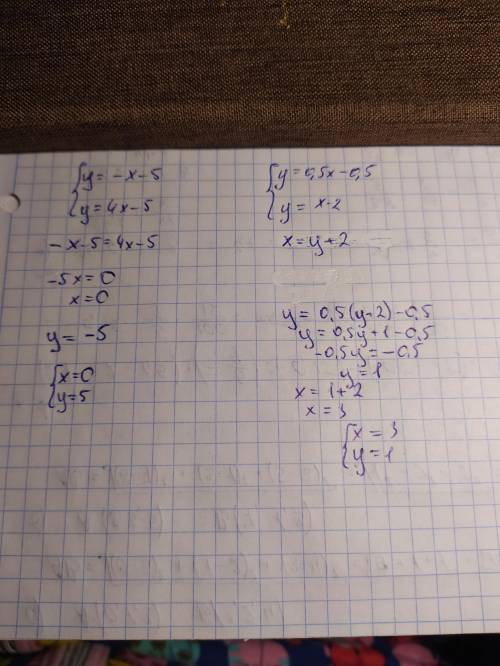 y = -x - 5
y = 4x - 5
-x - 5 = 4x - 5
-5x = 0
x = 0
y = -5
x = 0
y = 5
y = 0,5x - 0,5
y = x - 2
x = y + 2
y = 0,5(y+2) - 0,5
y = 0,5y + 1 - 0,5
-0,5y = -0,5
y = 1
x = 1 + 2
x = 3
x = 3
y = 1